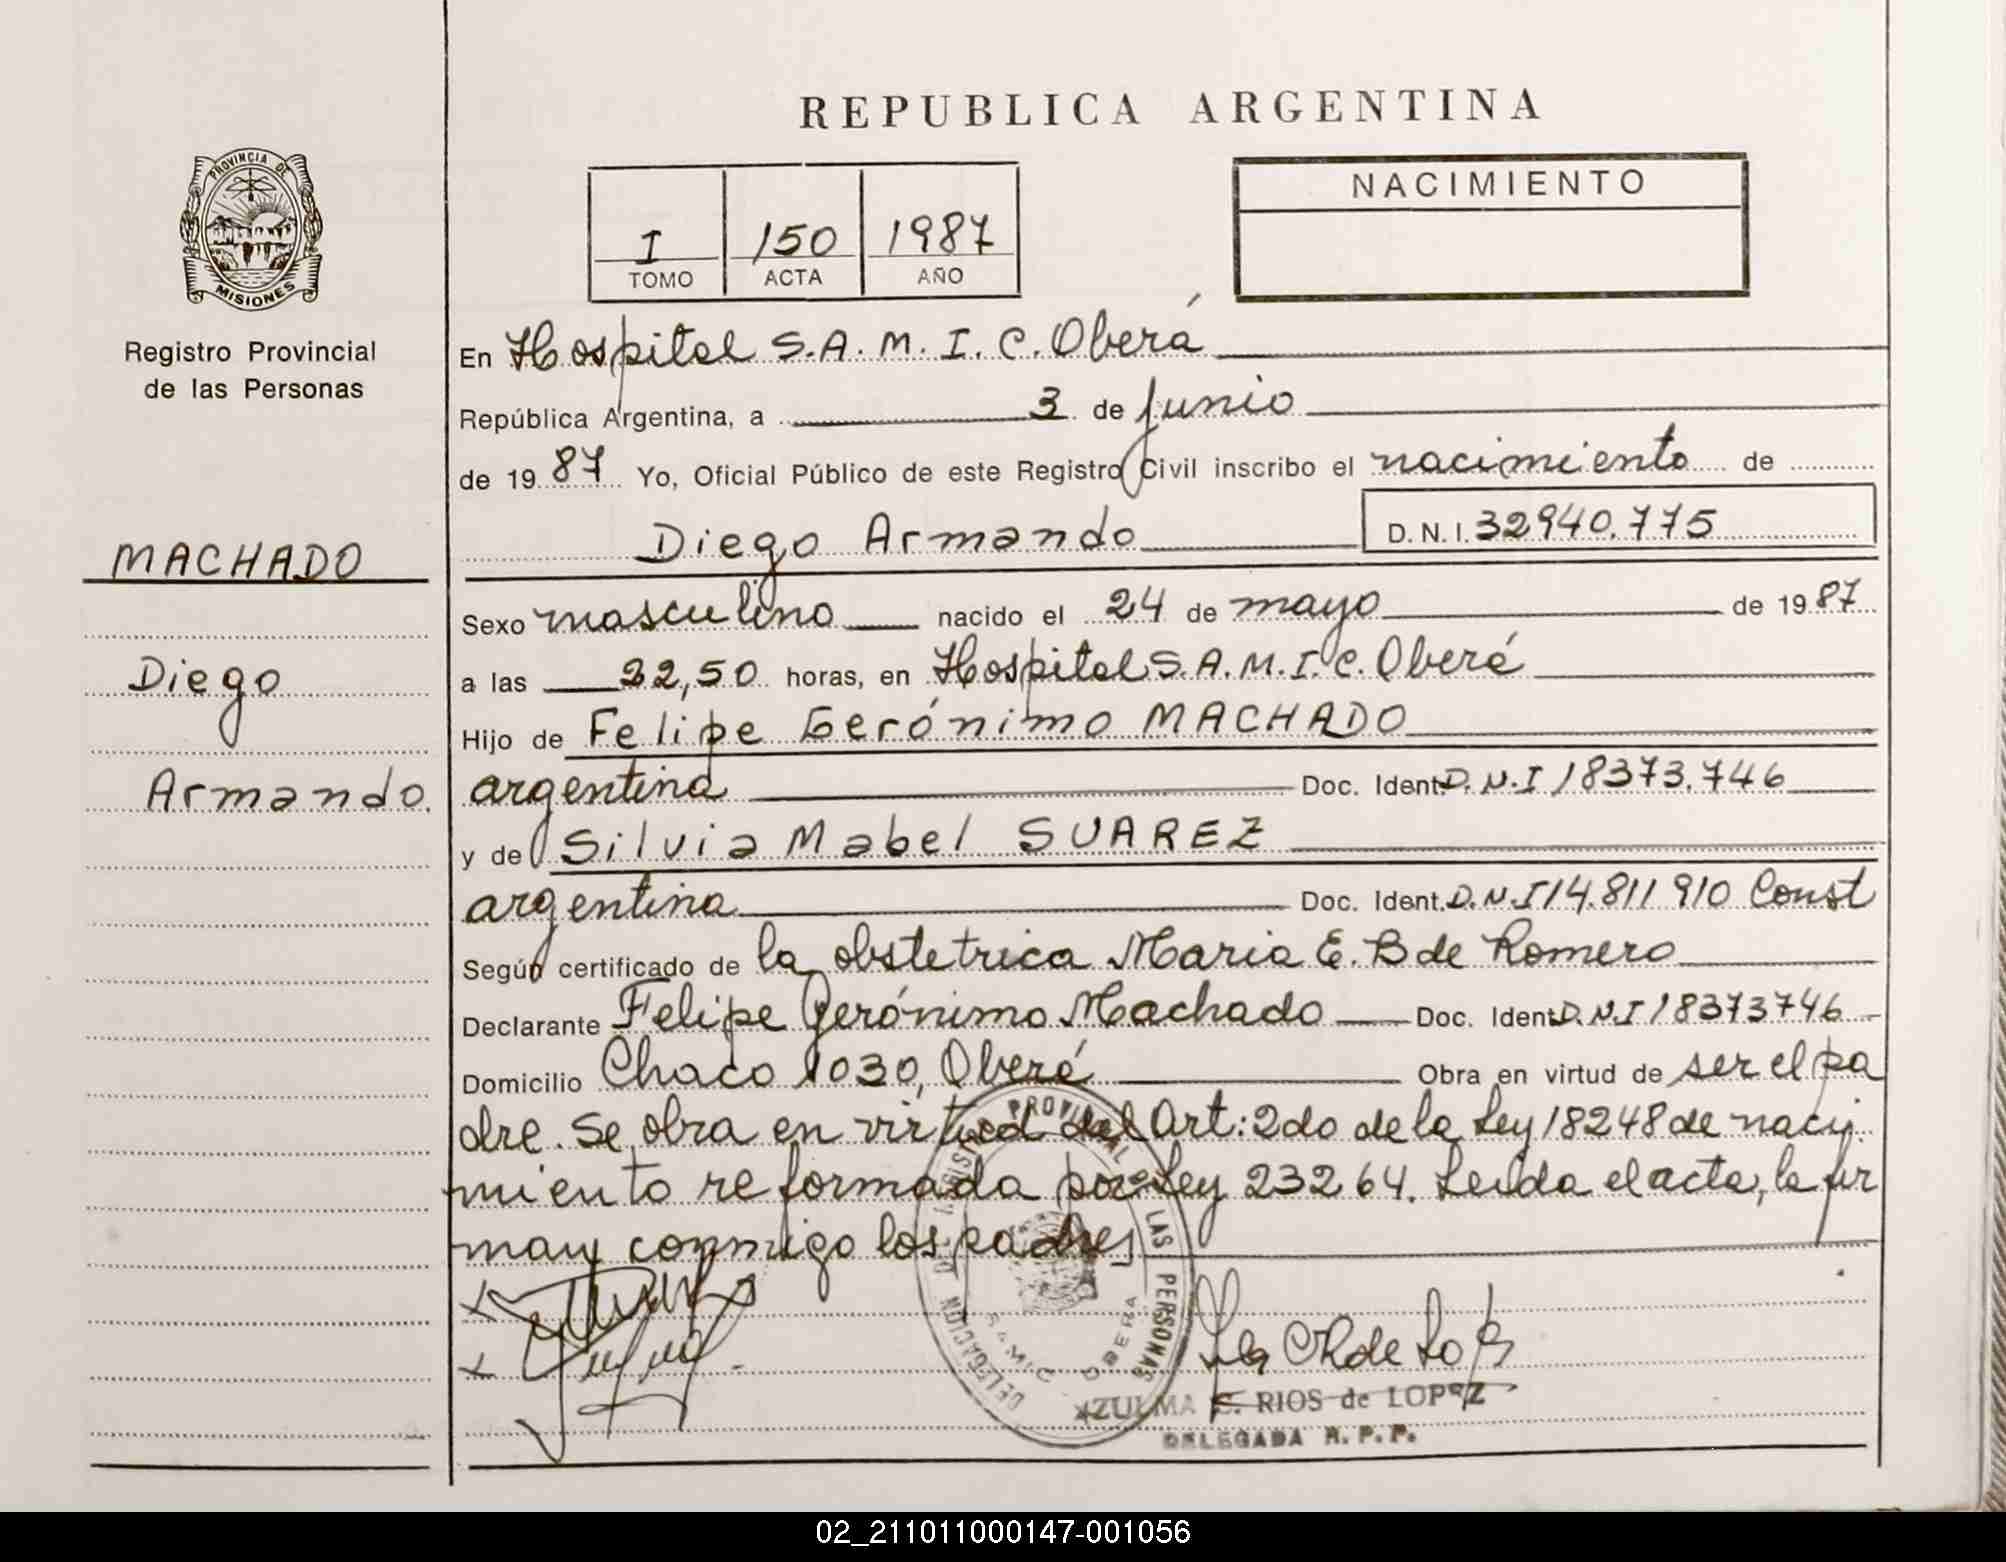 REPUBLICA ARGENTINA
PROVINCIA DE
MISIONES
Registro Provincial
de las Personas
I 150 1987
TOMO ACTA AÑO
NACIMIENTO
En Hospital S.A.M.I.C. Oberá
República Argentina, a 3 de junio
de 1987 Yo, Oficial Público de este Registro Civil inscribo el nacimiento de
Diego Armando D.N.I. 32940.775
MACHADO
Diego
Armando.
Sexo masculino nacido el 24 de mayo de 1987
a las 22,50 horas, en Hospital S.A.M.I.C. Oberá
Hijo de Felipe Gerónimo MACHADO
argentina Doc. Ident. D.N.I 18373.746
y de Silvia Mabel SUAREZ
argentina Doc. Ident. D.N.I 14.811 910 Const
Según certificado de la obstetrica Maria E. B de Romero
Declarante Felipe Gerónimo Machado Doc. Ident. D.N.I 18373746
Domicilio Chaco 1030, Oberá Obra en virtud de ser el pa
dre. Se obra en virtud del Art: 2do de la Ley 18248 de naci
miento reformada por Ley 23264. Leida el acta, la fir
man conmigo los padres
DELEGACION D REGISTRO PROVINCIAL D LAS PERSONAS
SAMIC OBERA
ZULMA E. RIOS de LOPEZ
DELEGADA R. P. P.
02_211011000147-001056